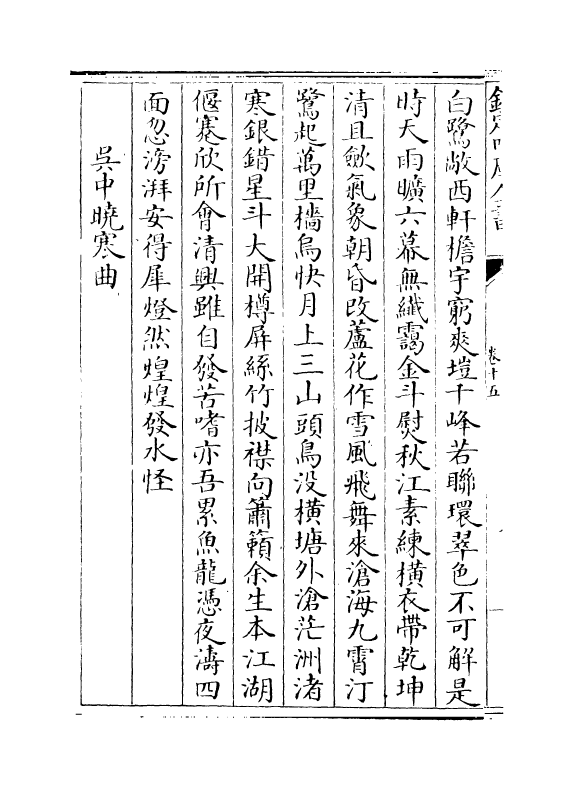 欽定四庫全書
卷十五
白鷺敞西軒檐宇窮爽塏千峰若聯環翠色不可解是
時天雨曠六幕無纖靄金斗熨秋江素練橫衣帶乾坤
清且歛氣象朝昏改蘆花作雪風飛舞來滄海九霄汀
鷺起萬里檣烏快月上三山頭鳥没橫塘外滄茫洲渚
寒銀錯星斗大開樽屏絲竹披襟向簫籟余生本江湖
偃蹇欣所會清興雖自發苦嗜亦吾累魚龍憑夜濤四
面忽滂湃安得犀燈然煌煌發水怪
吳中曉寒曲